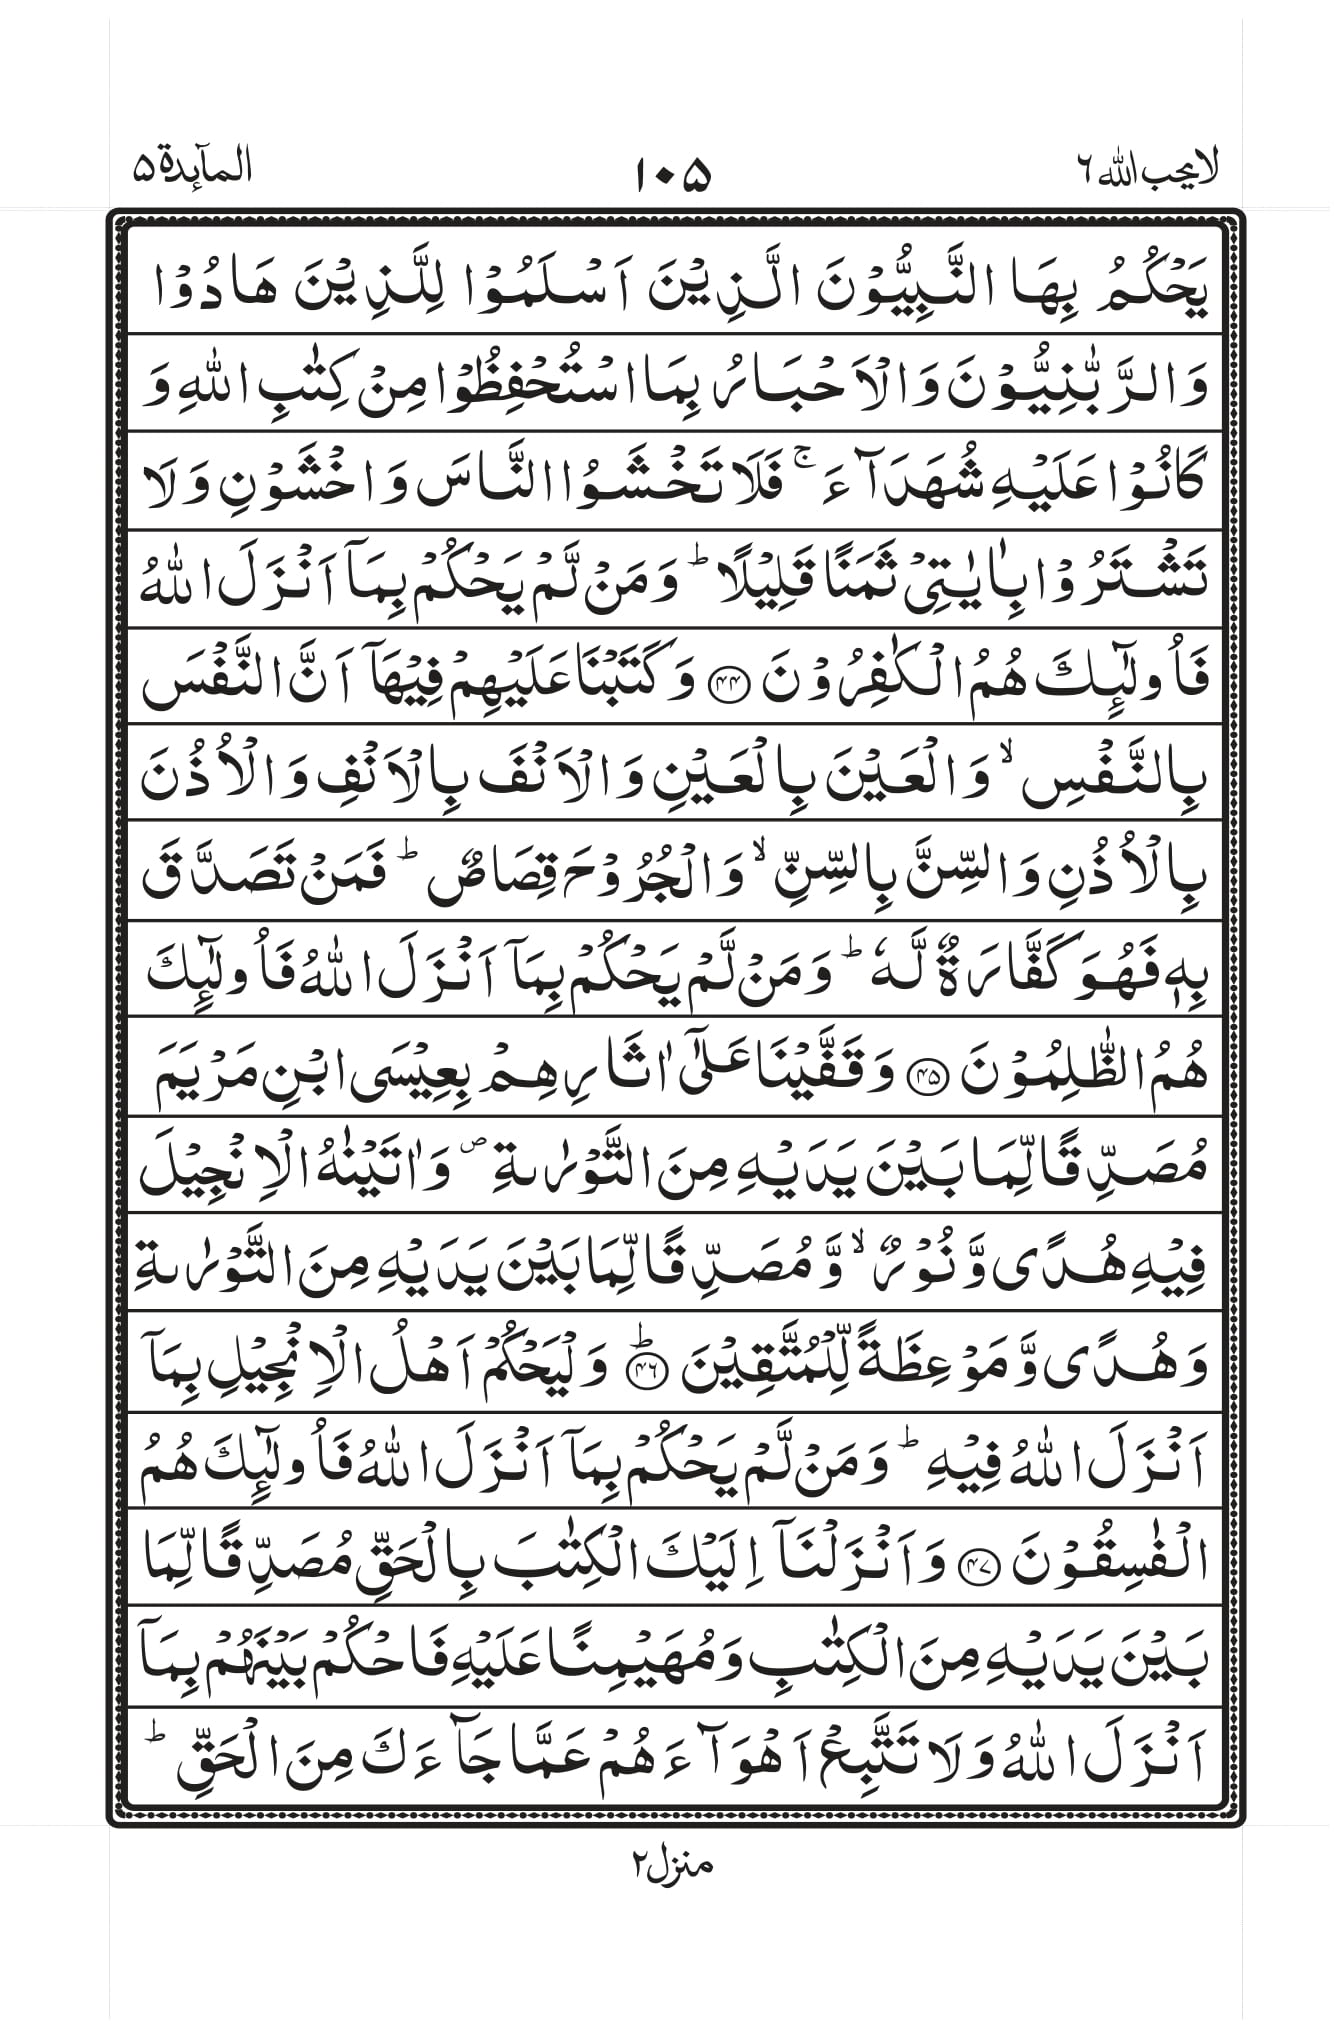 لا يحب الله ٦
١٠٥
المآىِٕدة ۵
يَحْكُمُ بِهَا النَّبِيُّوْنَ الَّذِيْنَ اَسْلَمُوْا لِلَّذِيْنَ هَادُوْا
وَالرَّبّٰنِيُّوْنَ وَالْاَحْبَارُ بِمَا اسْتُحْفِظُوْا مِنْ كِتٰبِ اللّٰهِ وَ
كَانُوْا عَلَيْهِ شُهَدَآءَ ۚ فَلَا تَخْشَوُا النَّاسَ وَاخْشَوْنِ وَلَا
تَشْتَرُوْا بِاٰيٰتِيْ ثَمَنًا قَلِيْلًا ؕ وَمَنْ لَّمْ يَحْكُمْ بِمَاۤ اَنْزَلَ اللّٰهُ
فَاُولٰٓىِٕكَ هُمُ الْكٰفِرُوْنَ ﴿۴۴﴾ وَكَتَبْنَا عَلَيْهِمْ فِيْهَاۤ اَنَّ النَّفْسَ
بِالنَّفْسِ ۙ وَالْعَيْنَ بِالْعَيْنِ وَالْاَنْفَ بِالْاَنْفِ وَالْاُذُنَ
بِالْاُذُنِ وَالسِّنَّ بِالسِّنِّ ۙ وَالْجُرُوْحَ قِصَاصٌ ؕ فَمَنْ تَصَدَّقَ
بِهٖ فَهُوَ كَفَّارَةٌ لَّهٗ ؕ وَمَنْ لَّمْ يَحْكُمْ بِمَاۤ اَنْزَلَ اللّٰهُ فَاُولٰٓىِٕكَ
هُمُ الظّٰلِمُوْنَ ﴿۴۵﴾ وَقَفَّيْنَا عَلٰۤى اٰثَارِهِمْ بِعِيْسَى ابْنِ مَرْيَمَ
مُصَدِّقًا لِّمَا بَيْنَ يَدَيْهِ مِنَ التَّوْرٰىةِ ۪ وَاٰتَيْنٰهُ الْاِنْجِيْلَ
فِيْهِ هُدًى وَّنُوْرٌ ۙ وَّمُصَدِّقًا لِّمَا بَيْنَ يَدَيْهِ مِنَ التَّوْرٰىةِ
وَهُدًى وَّمَوْعِظَةً لِّلْمُتَّقِيْنَ ؕ﴿۴۶﴾ وَلْيَحْكُمْ اَهْلُ الْاِنْجِيْلِ بِمَاۤ
اَنْزَلَ اللّٰهُ فِيْهِ ؕ وَمَنْ لَّمْ يَحْكُمْ بِمَاۤ اَنْزَلَ اللّٰهُ فَاُولٰٓىِٕكَ هُمُ
الْفٰسِقُوْنَ ﴿۴۷﴾ وَاَنْزَلْنَاۤ اِلَيْكَ الْكِتٰبَ بِالْحَقِّ مُصَدِّقًا لِّمَا
بَيْنَ يَدَيْهِ مِنَ الْكِتٰبِ وَمُهَيْمِنًا عَلَيْهِ فَاحْكُمْ بَيْنَهُمْ بِمَاۤ
اَنْزَلَ اللّٰهُ وَلَا تَتَّبِعْ اَهْوَآءَهُمْ عَمَّا جَآءَكَ مِنَ الْحَقِّ ؕ
منزل ٢